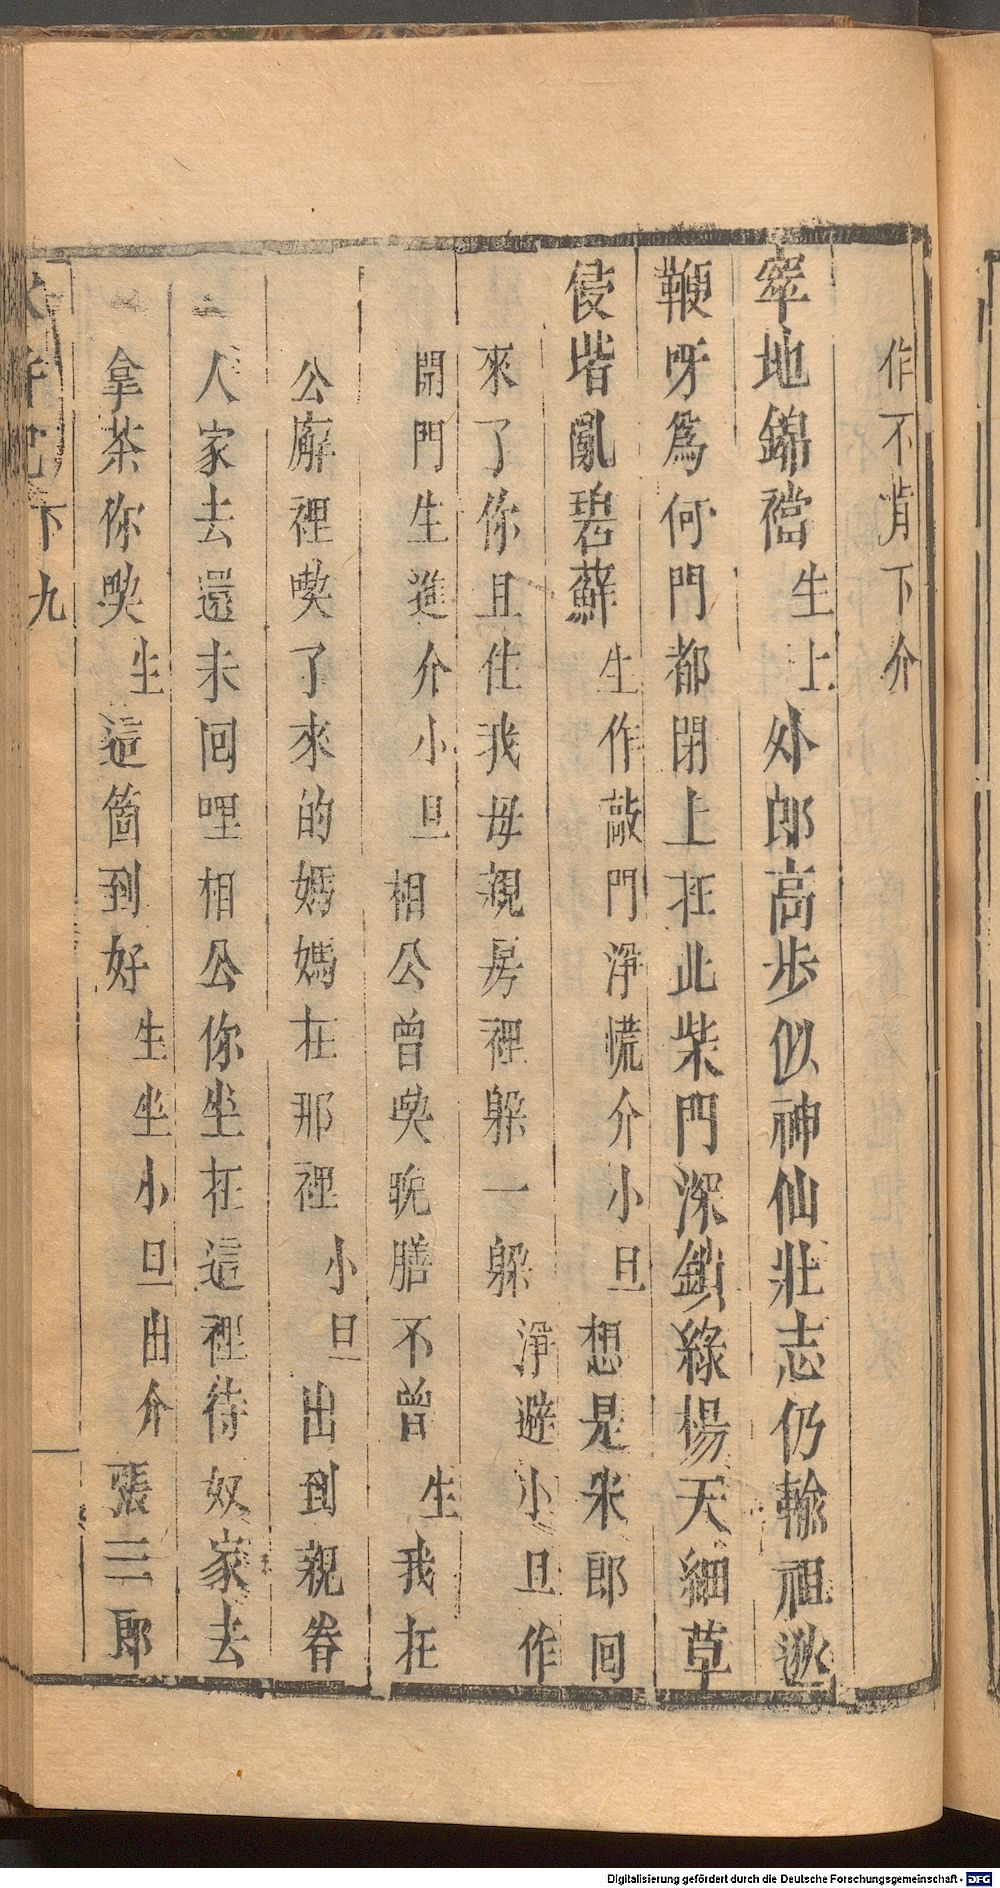 作不肯下介
窣地錦襠生上外郎高步似神仙壯志仍輸祖逖
鞭呀爲何門都閉上在此柴門深鎖綠楊天細草
侵堦亂碧蘚生作敲門淨慌介小旦想是宋郎回
來了你且住我母親房裡躱一躱淨避小旦作
開門生進介小旦相公曾喫晚膳不曾生我在
公廨裡喫了來的媽媽在那裡小旦出到親眷
人家去還未回哩相公你坐在這裡待奴家去
拿茶你喫生這箇到好生坐小旦出介張三郎
水滸記下九
Digitalisierung gefördert durch die Deutsche Forschungsgemeinschaft - DFG